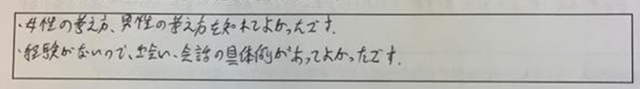 ・女性の考え方、男性の考え方を知れてよかったです。
・経験がないので、出会い、会話の具体例があってよかったです。